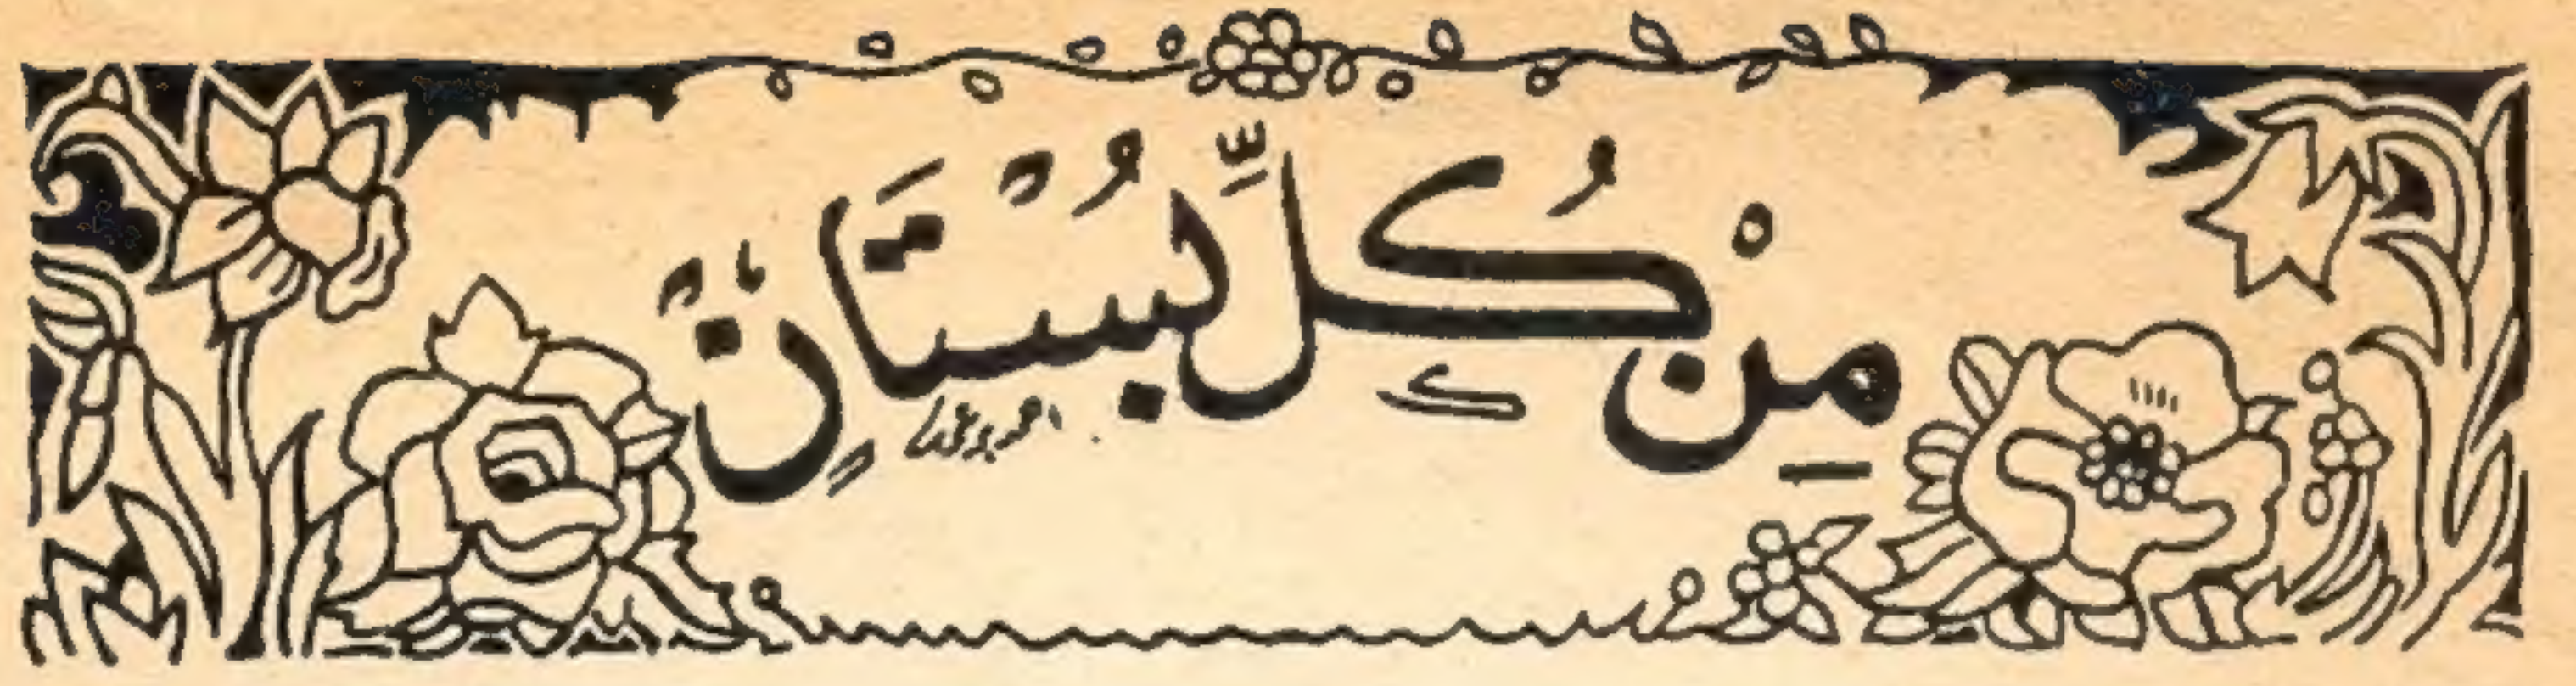 مِنْ كُلِّ بُسْتَانٍ